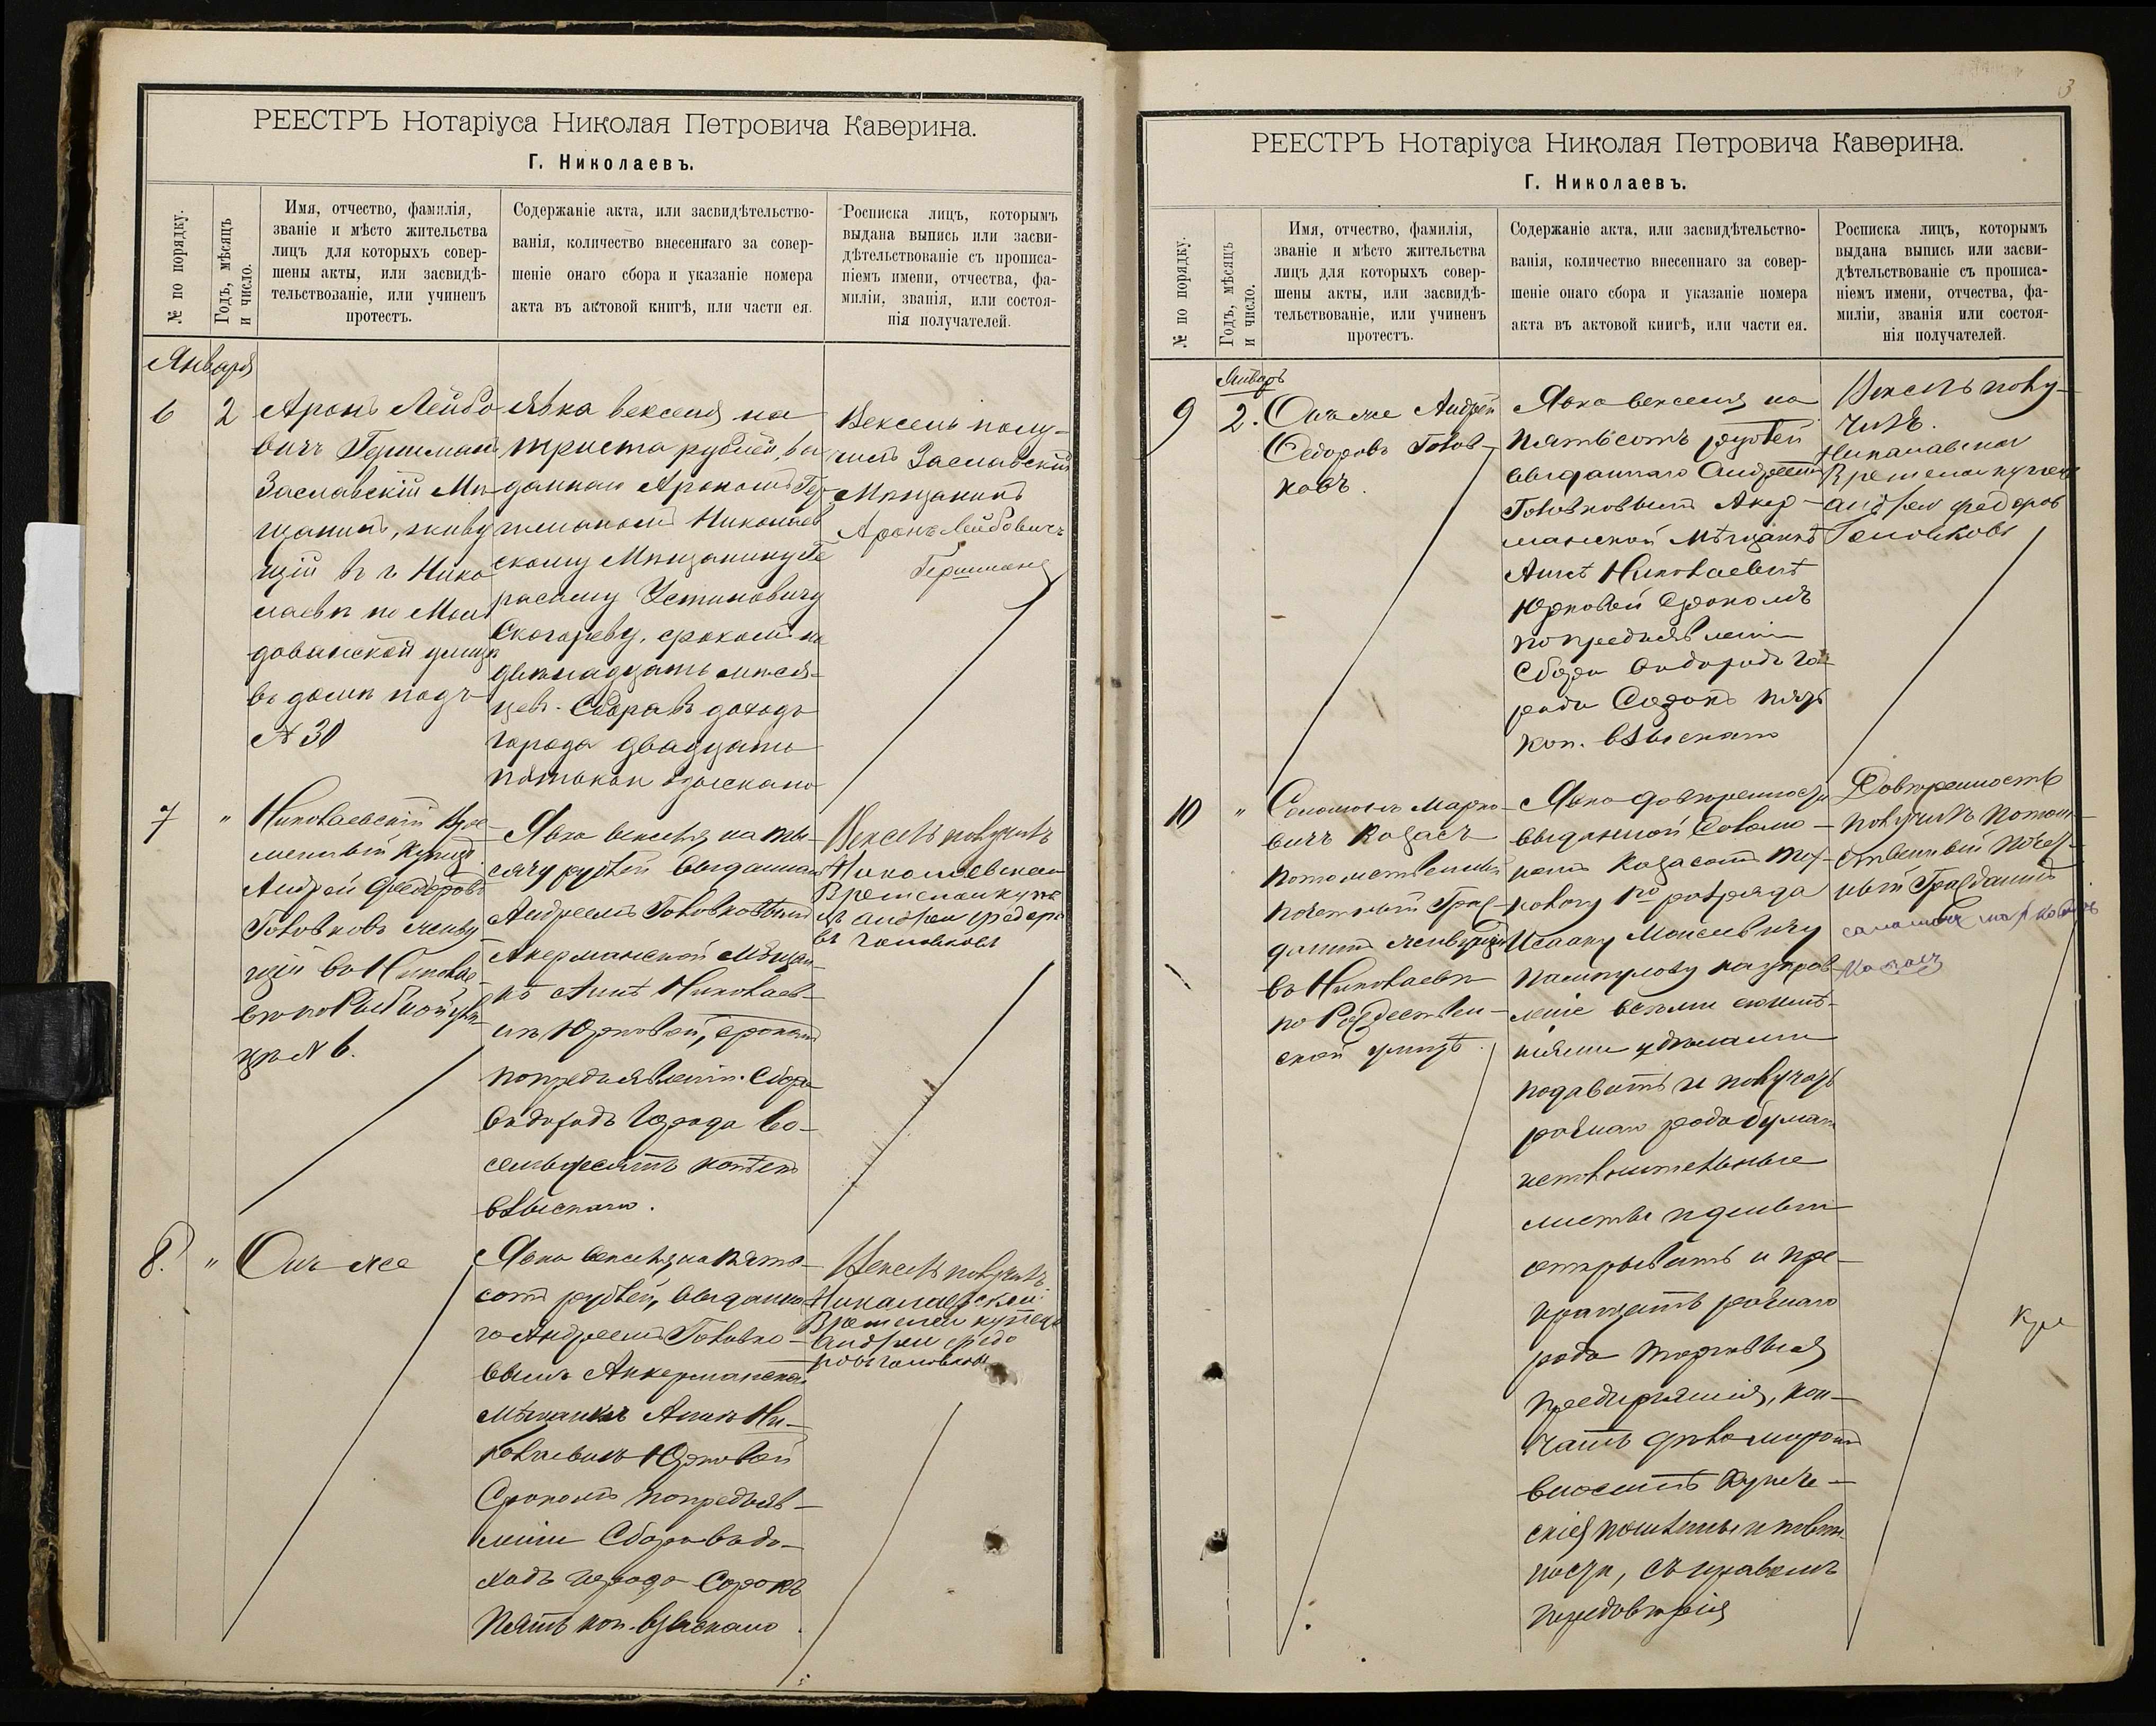 РЕЕСТРЪ Нотаріуса Николая Петровича Каверина.
Г. Николаевъ.
№ по порядку.
Годъ, мѣсяцъ
и число.
Имя, отчество, фамилія,
званіе и мѣсто жительства
лицъ для которыхъ совер-
шены акты, или засвидѣ-
тельствованіе, или учиненъ
протестъ.
Содержаніе акта, или засвидѣтельство-
ванія, количество внесеннаго за совер-
шеніе онаго сбора и указаніе номера
акта въ актовой книгѣ, или части ея.
Росписка лицъ, которымъ
выдана выпись или засви-
дѣтельствованіе съ прописа-
ніемъ имени, отчества, фа-
миліи, званія, или состоя-
нія получателей.
Января
6
2
Аронъ Лейбо
вичъ Гершманъ
Заславскій Мѣ
щанинъ, живу
щій въ г Нико
лаевѣ по Мол
даванской улицѣ
въ домѣ подъ
№ 30
Явка векселя на
триста рублей, вы
даннаго Арономъ Гер
шманомъ Николаев
скому Мѣщанину Ге
расиму Устиновичу
срокомъ на
двѣнадцать мѣся-
цевъ. Сбора въ доходъ
города двадцать
пять коп взыскано
Вексель полу-
чилъ Заславскій
Мѣщанинъ
Аронъ Лейбовичъ
Гершманъ
7
"
Николаевскій Вре
менный Купецъ
Андрей Федоровъ
Головковъ живу
щій въ Николае
вѣ по Рыбной ули
цѣ № 6.
Явка векселя на ты-
сячу рублей выданнаго
Андреемъ Головковымъ
Акерманской Мѣщан
кѣ Аннѣ Николаев-
нѣ Юрковой, срокомъ
по предъявленіи. Сбора
въ доходъ города во-
семьдесятъ копѣекъ
взыскано.
Вексель получилъ
Николаевской
Временои купе
цъ андреи федоро
въ головковъ
8.
"
Онъ же
Явка векселя на пять-
сотъ рублей, выданна
го Андреемъ Головко-
вымъ Аккерманской
Мѣщанкѣ Аннѣ Ни-
колаевнѣ Юрковой
Срокомъ по предъяв-
леніи Сбора въ до-
ходъ города Сорокъ
пять коп. взыскано.
Вексель получилъ
Николаевской
Временеи купецъ
андреи федо
ровъ головковъ
3
РЕЕСТРЪ Нотаріуса Николая Петровича Каверина.
Г. Николаевъ.
№ по порядку.
Годъ, мѣсяцъ
и число.
Имя, отчество, фамилія,
званіе и мѣсто жительства
лицъ для которыхъ совер-
шены акты, или засвидѣ-
тельствованіе, или учиненъ
протестъ.
Содержаніе акта, или засвидѣтельство-
ванія, количество внесеннаго за совер-
шеніе онаго сбора и указаніе номера
акта въ актовой книгѣ, или части ея.
Росписка лицъ, которымъ
выдана выпись или засви-
дѣтельствованіе съ прописа-
ніемъ имени, отчества, фа-
миліи, званія или состоя-
нія получателей.
Январь
9
2.
Онъ же Андрей
Федоровъ Голов-
ковъ.
Явка векселя на
пятьсотъ рублей
выданнаго Андреемъ
Головковымъ Акер-
манской Мѣщанкѣ
Аннѣ Николаевнѣ
Юрковой Срокомъ
по предъявленіи
Сбора въ доходъ го-
рода Сорокъ пять
коп. взыскано
Вексель полу-
чилъ.
Николаевской
Временои купецъ
андреи федоров
Головковъ
10
"
Соломонъ Марко-
вичъ Казасъ
потомственный
почетный Граж-
данинъ живущій
въ Николаевѣ
по Рождествен-
ской улицѣ.
Явка довѣренности
выданной Соломо-
номъ Казасомъ
1го разряда
Исааку Моисеевичу
на управ-
леніе всѣми его имѣ-
ніями и дѣлами
подавать и получать
разнаго рода бумаги
исполнительные
листы и деньги
открывать и пре-
кращать разнаго
рода торговыя
предпріятія, кон-
чать дѣла миромъ
вносить Купече-
скія пошлины и повин-
ности, съ правомъ
передовѣрія
Довѣренность
получилъ Потом-
ственный почет-
ный Гражданинъ
саломонъ марковичъ
Казасъ